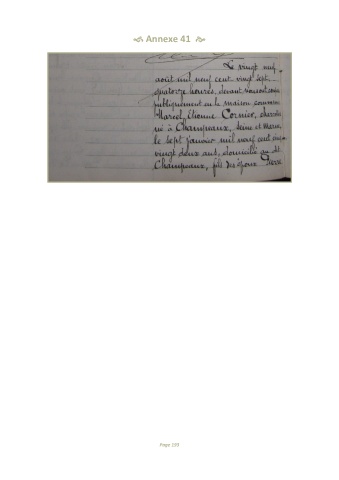 Annexe 41
Le vingt neuf
août mil neuf cent vingt sept
quatorze heures, devant Nous ont comparu
publiquement en la maison commune
Marcel Etienne Cornier,
né à Champeaux, Seine et Marne,
le sept janvier mil neuf cent cinq
vingt deux ans, domicilié au dit
Champeaux, fils des époux Pierre
Page 103